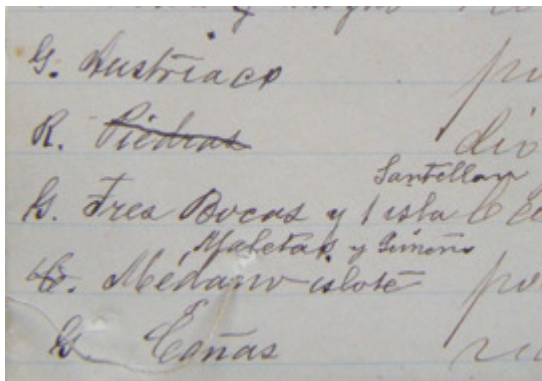 G. Austriaco po
R. Piedras dio
Santellan
G. Tres Bocas y 1 isla
Maletas y Gimeno
G. Médano islote po
G. Cañas